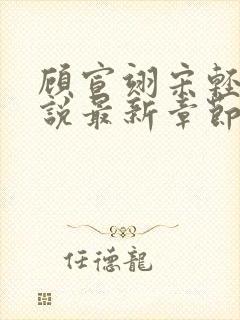 顧宣翊宋輕
說最新章節
任德龍